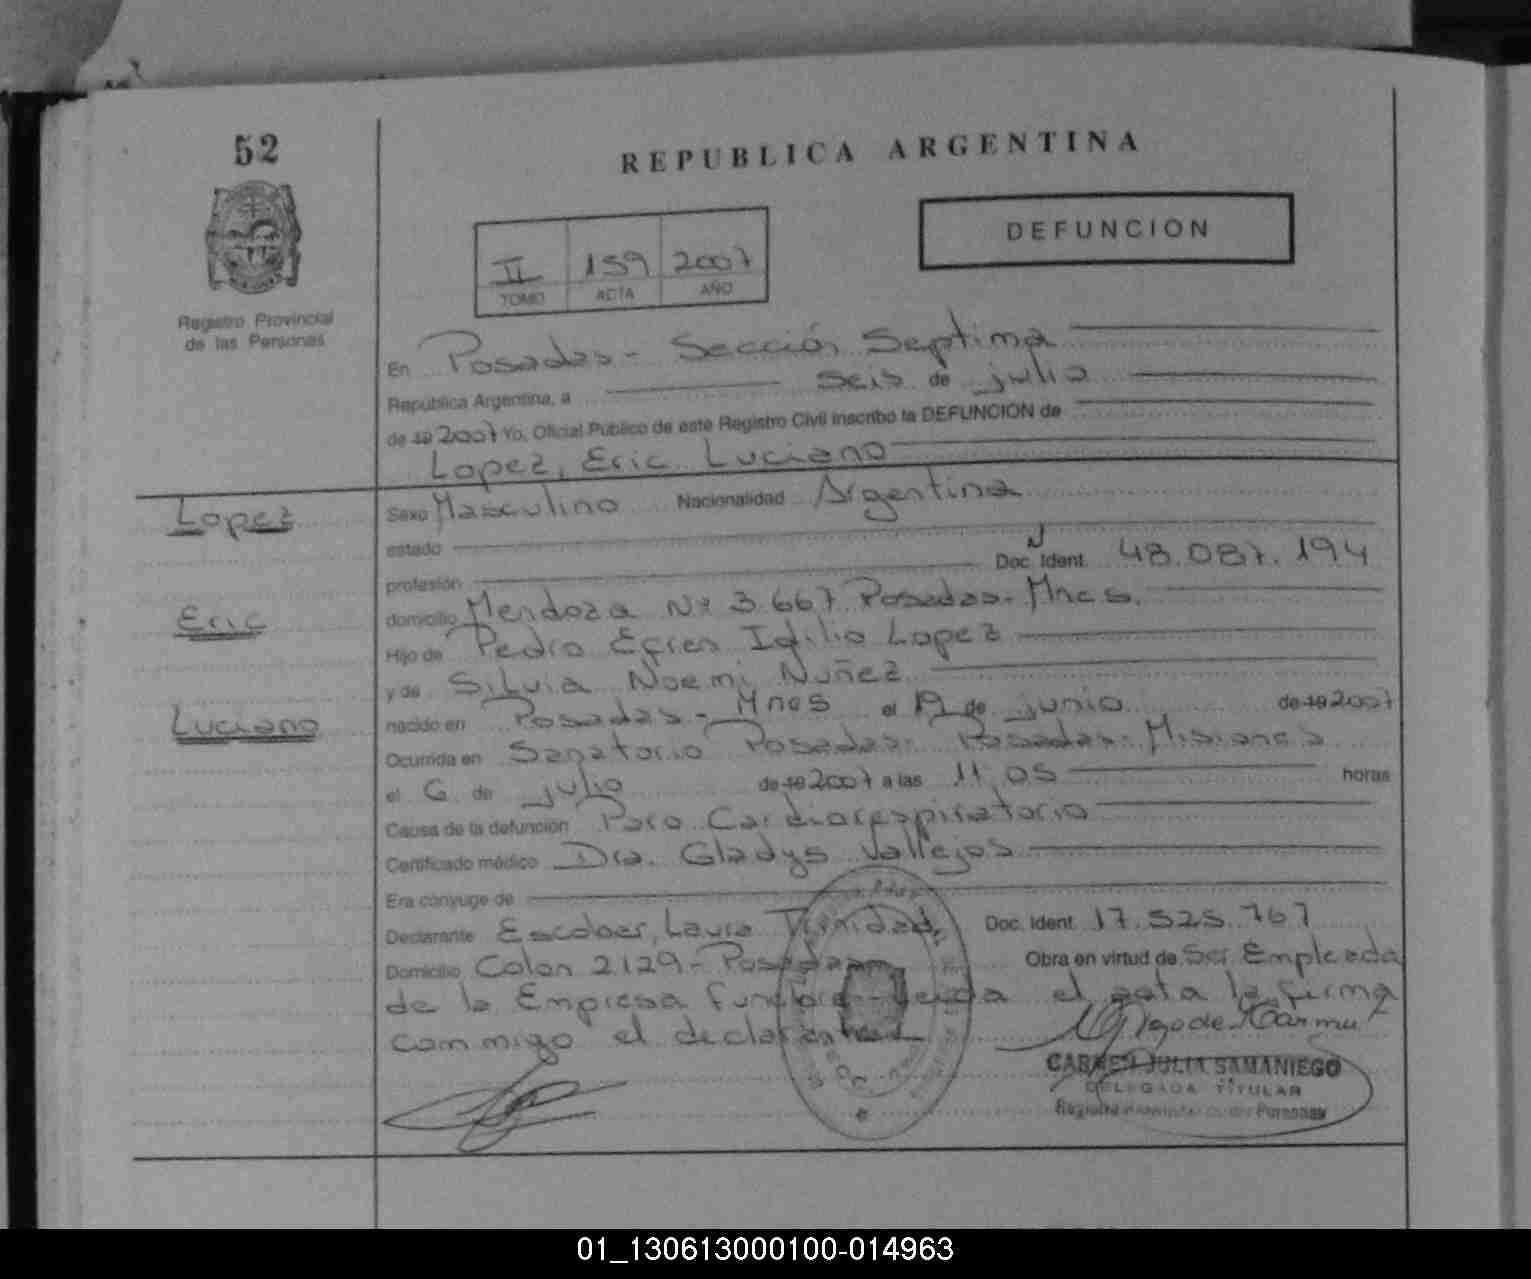 52
REPUBLICA ARGENTINA
DEFUNCION
II 159 2007
TOMO ACTA AÑO
Registro Provincial
de las Personas
En Posadas - Sección Septima
República Argentina, a seis de julio
de 19 2007 Yo, Oficial Público de este Registro Civil inscribo la DEFUNCION de
Lopez, Eric Luciano
Lopez
Eric
Luciano
Sexo Masculino Nacionalidad Argentina
estado
profesión Doc. Ident. 48.087.194
domicilio Mendoza Nº 3.667 Posadas - Mnes.
Hijo de Pedro Efren Idilio Lopez
y de Silvia Noemi Nuñez
nacido en Posadas - Mnes el de junio de 19 2007
Ocurrida en Sanatorio Posadas - Posadas - Misiones
el 6 de julio de 19 2007 a las 11,05 horas
Causa de la defunción Paro Cardiorespiratorio
Certificado médico Dra. Gladys Vallejos
Era cónyuge de
Declarante Escobar, Laura Trinidad Doc. Ident. 17.525.767
Domicilio Colon 2129 - Posadas Obra en virtud de Ser Empleada
de la Empresa Funebre - Leida el acta la firma
conmigo el declarante
CARMEN JULIA SAMANIEGO
DELEGADA TITULAR
Registro Provincial de las Personas
01_130613000100-014963